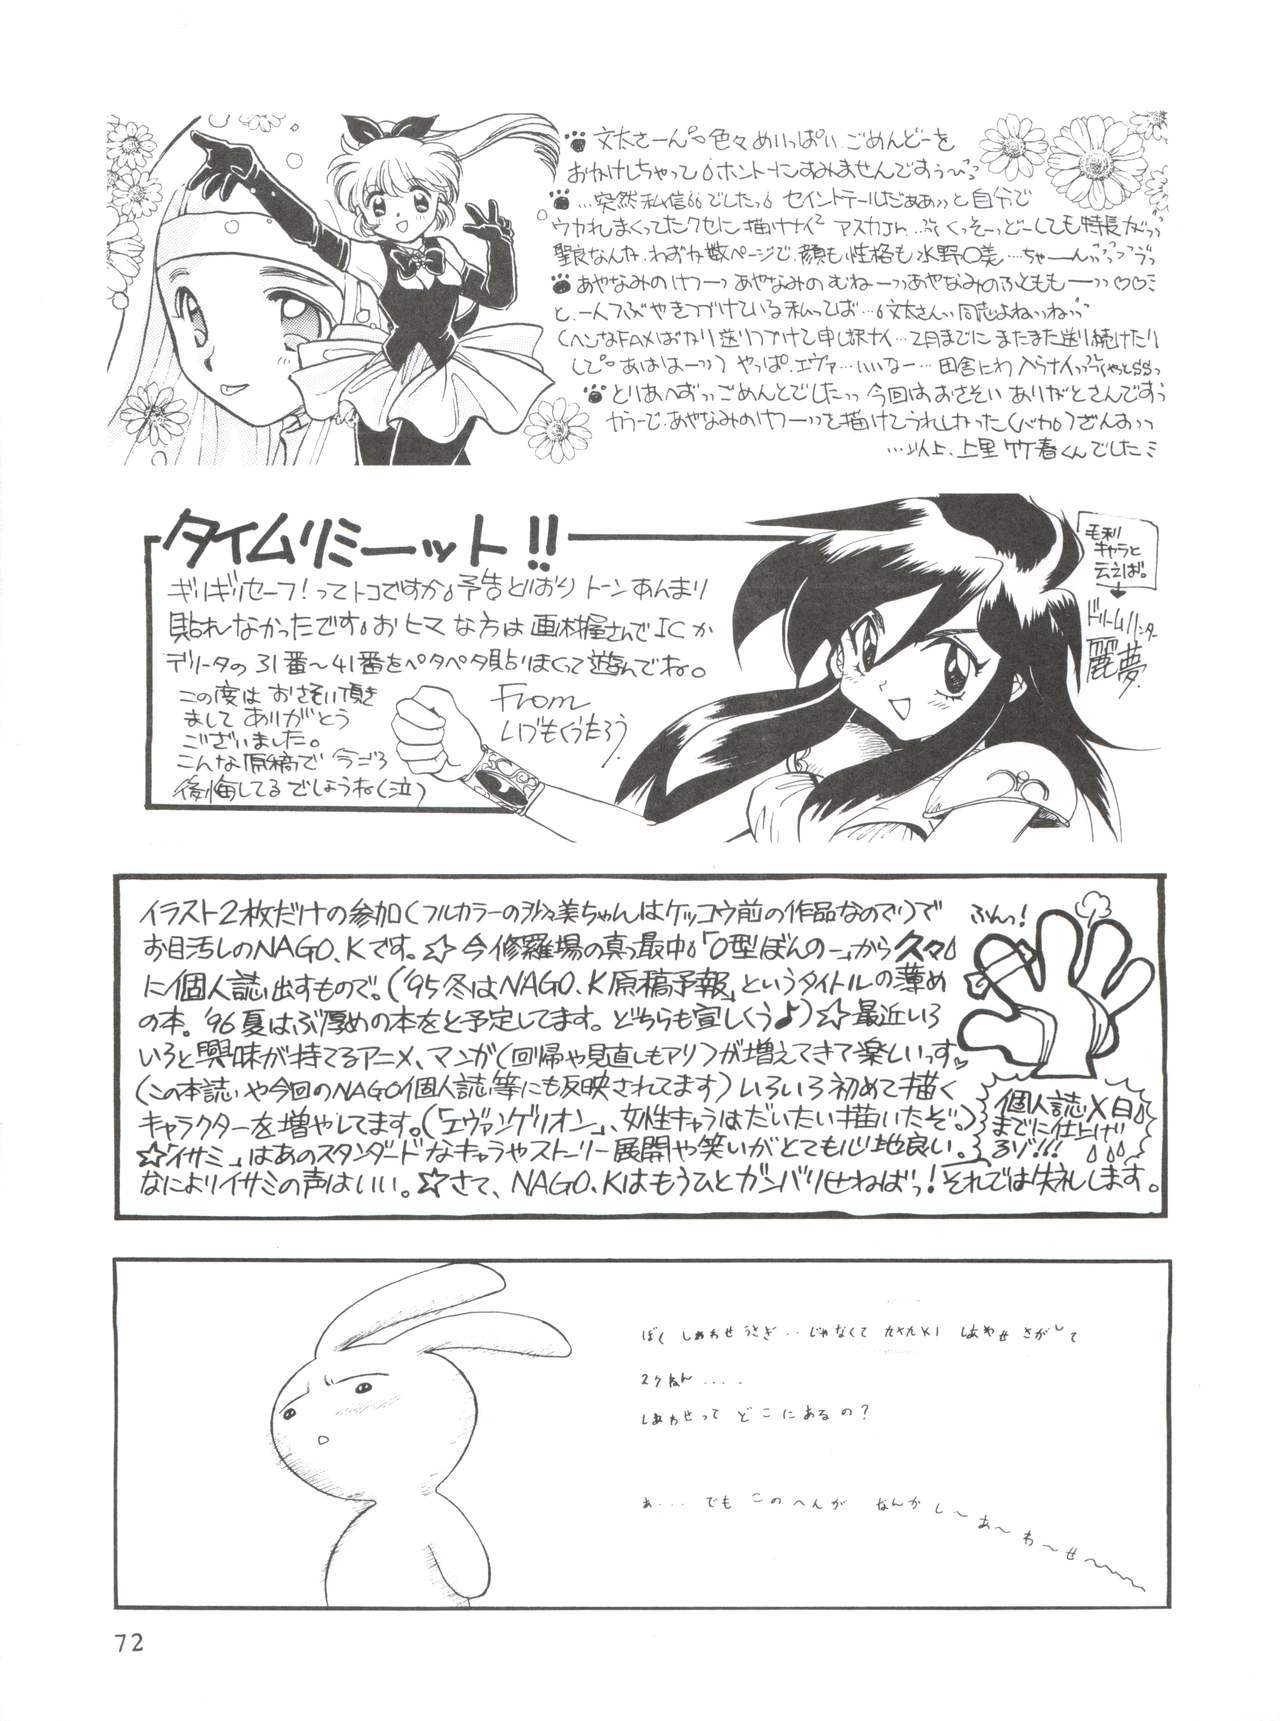 文太さーん色々めいっぱいごめんどーを
おかけしちゃって ホントーにすみませんですぅ〜
…突然私信でした。セイントテールだぁぁっと自分で
ウカれまくってたクセに描けナイ² アスカJr.…ぶくっそーっどーしても特長がっっ
聖良なんか、わずか数ページで、顔も性格も水野〇美…ちゃーんっっ
あやなみのけつーっあやなみのむねーっっあやなみのふとももーっっ♡♡
と、一人つぶやきつづけている私ってば…文太さんっ同志よねっねっ
(ヘンなFAXばかり送りつけて申し訳ナイ…2月までにまたまた送り続けたり
して。あははーっっ) やっぱ、エヴァ…いいなー…田舎にわ入らナイっっ
とりあへずっっごめんとでしたっっ今回はおさそいありがとさんですぅ
あやなみのけつーっっを描けてうれしかった(バカ)
…以上、上里竹春くんでしたミ
タイムリミーット!!
ギリギリセーフ!ってトコですか。予告どおりトーンあんまり
貼れなかったです。おヒマな方は画材屋さんでICか
デリータの31番〜41番をペタペタ貼りまくって遊んでね。
この度はおさそい頂き
ましてありがとう
ございました。
こんな原稿で今ごろ
後悔してるでしょうね(泣)
From
いづもくうたろう
毛利
キャラと
云えば。
ドリームハンター
麗夢
イラスト2枚だけの参加(フルカラーの沙々美ちゃんはケッコウ前の作品なので!)で
お目汚しのNAGO.Kです。☆今修羅場の真っ最中「O型ぼんのー」から久々
に個人誌出すもので。('95冬は「NAGO.K原稿予報」というタイトルの薄め
の本。'96夏はぶ厚めの本をと予定してます。どちらも宜しくぅ♪)☆最近いろ
いろと興味が持てるアニメ、マンガ(回帰や見直しもアリ)が増えてきて楽しいっす♥
(この本誌や今回のNAGO個人誌等にも反映されてます)いろいろ初めて描く
キャラクターを増やしてます。(「エヴァンゲリオン」、女性キャラはだいたい描いたぞ。)
☆「イサミ」はあのスタンダードなキャラやストーリー展開や笑いがとても心地良い。
なによりイサミの声はいい。☆さて、NAGO.Kはもうひとガンバリせねばっ!それでは失礼します。
ふんっ!
個人誌〆日
までに仕上げ
るゾ!!!
ぼく しあわせうさぎ・・じゃなくて しあわせ さがして
27ねん・・・・
しあわせって どこにあるの?
あ・・・でも このへんが なんか し〜あ〜わ〜せ〜
72